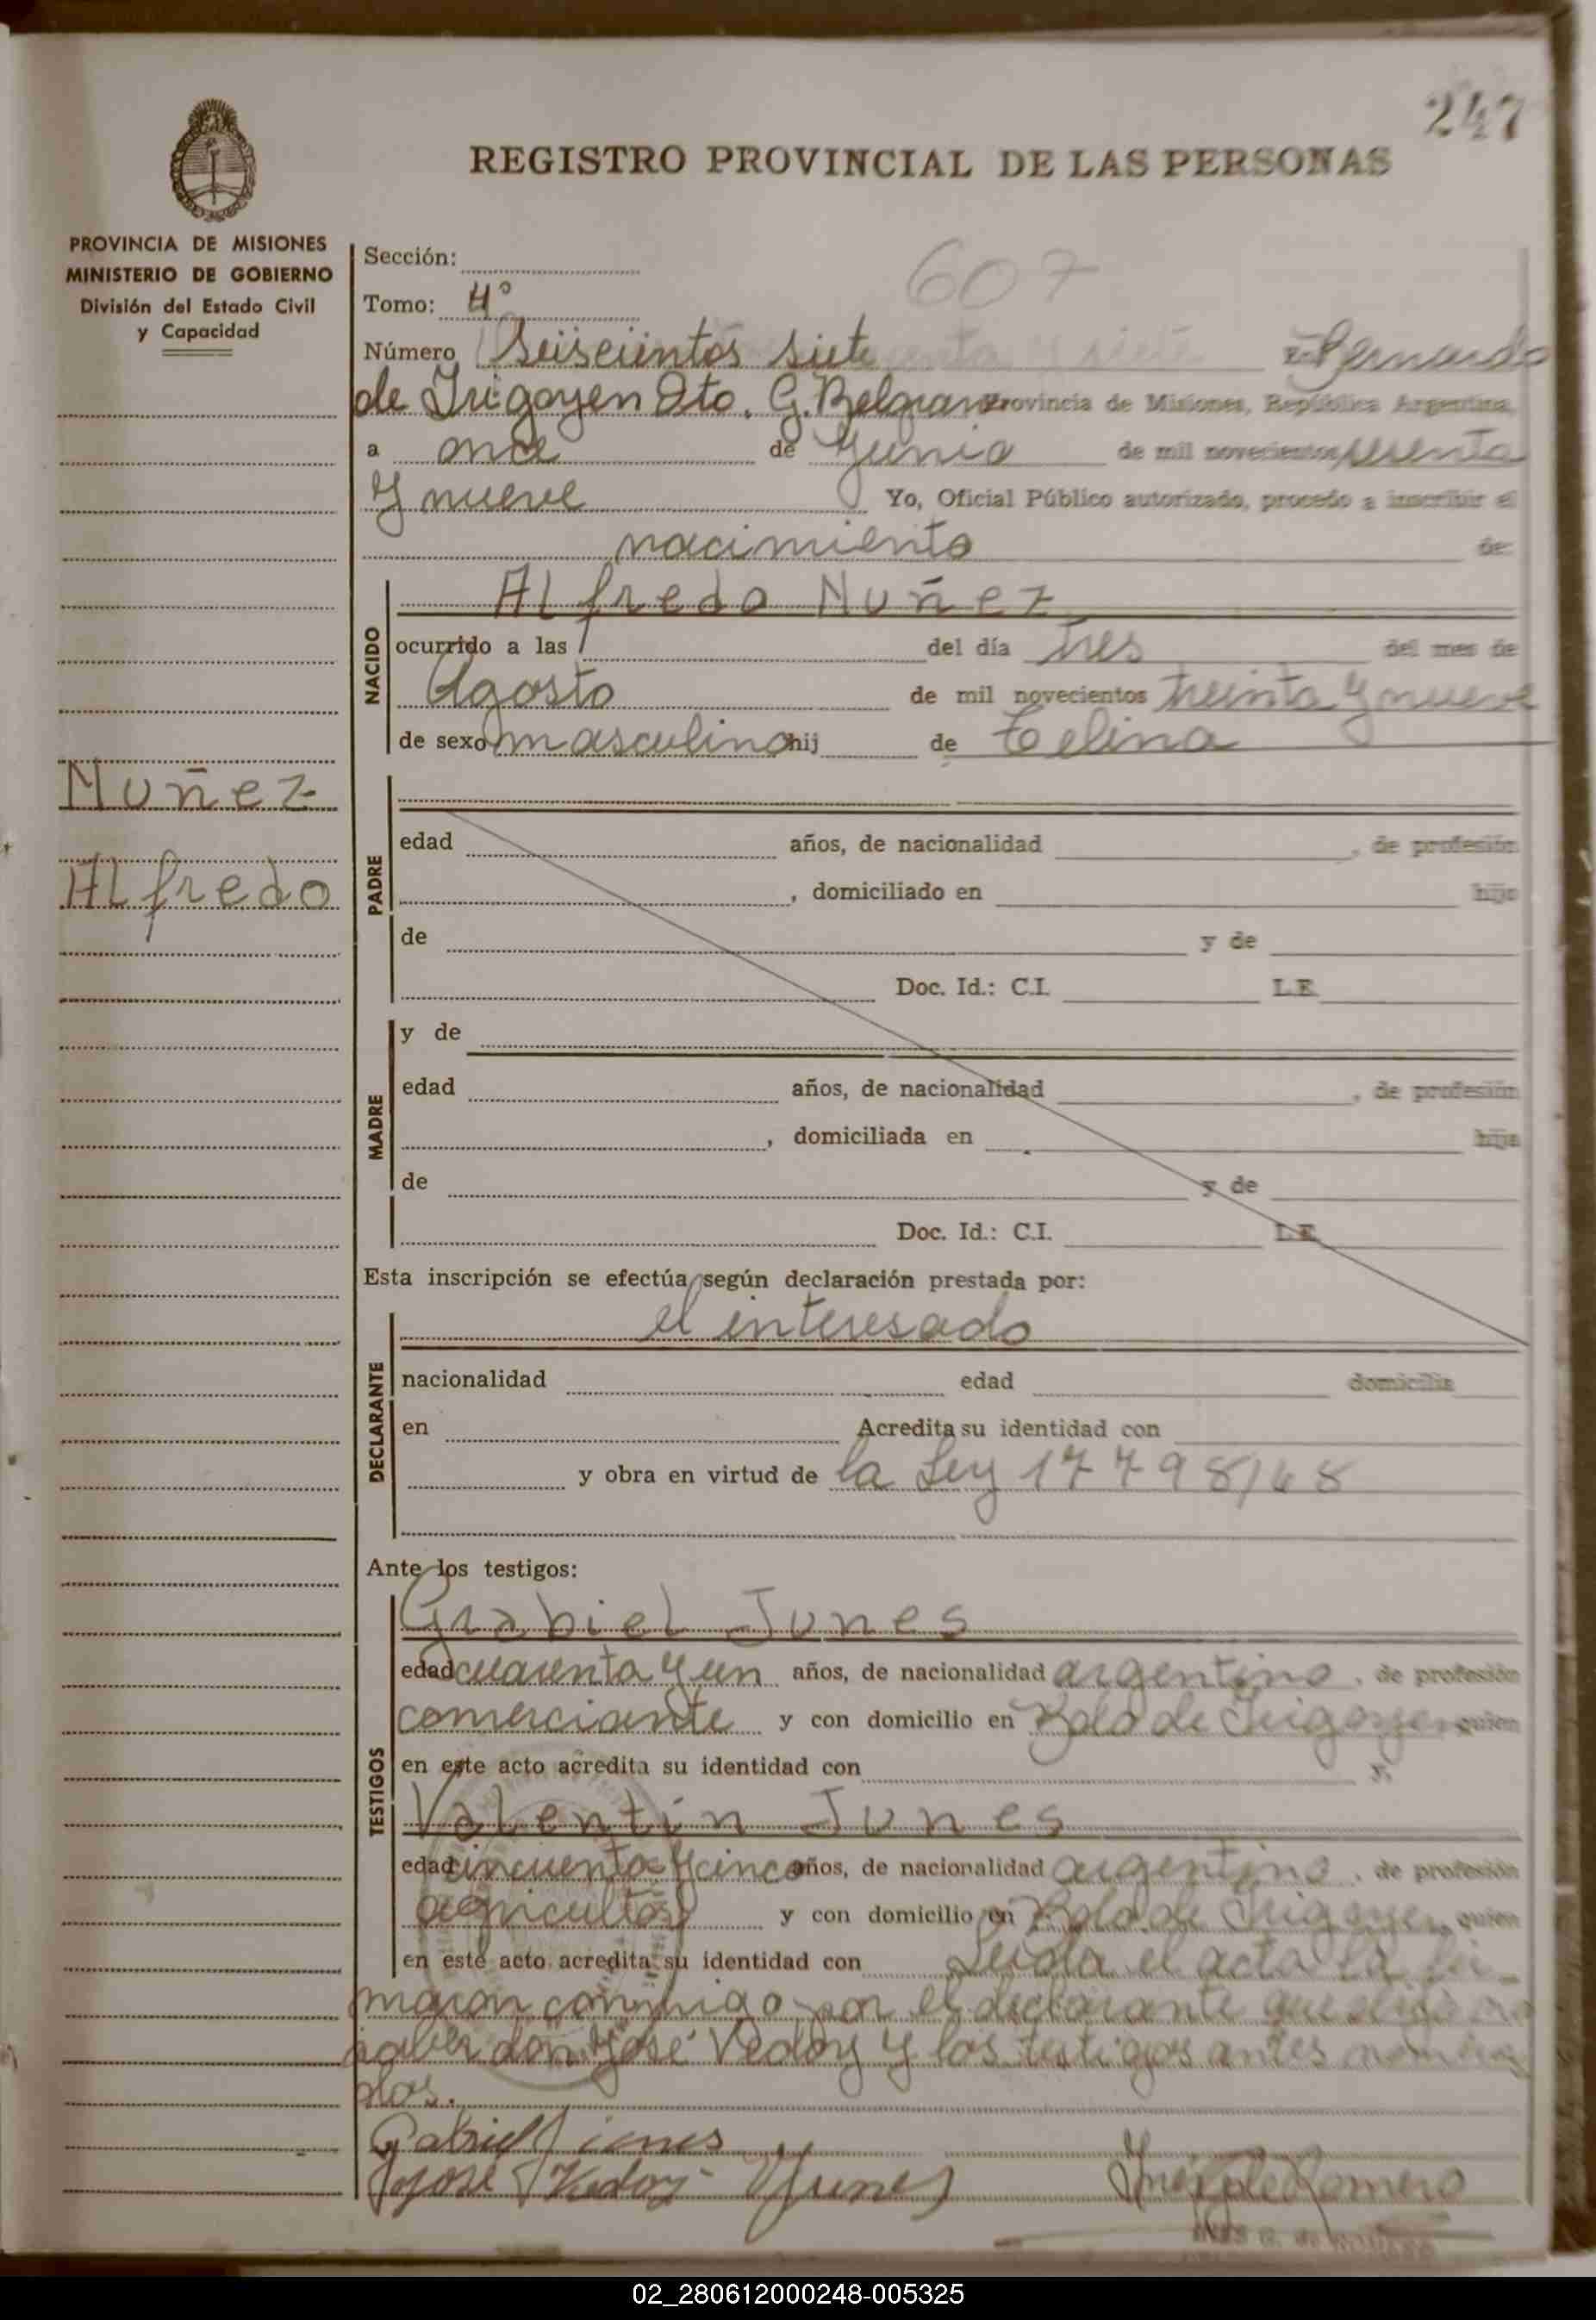 247
REGISTRO PROVINCIAL DE LAS PERSONAS
PROVINCIA DE MISIONES
MINISTERIO DE GOBIERNO
División del Estado Civil
y Capacidad
Sección:
607
Tomo: 4°
Número Seiscientos siete En Bernardo
de Irigoyen Dto. G. Belgrano Provincia de Misiones, República Argentina,
a once de Junio de mil novecientos sesenta
y nueve Yo, Oficial Público autorizado, procedo a inscribir el
nacimiento de:
NACIDO
Alfredo Nuñez
ocurrido a las del día tres del mes de
Agosto de mil novecientos treinta y nueve
de sexo masculino hij de Celina
Nuñez
Alfredo
PADRE
edad años, de nacionalidad , de profesión
, domiciliado en hijo
de y de
Doc. Id.: C.I. L.E.
MADRE
y de
edad años, de nacionalidad , de profesión
, domiciliada en hija
de y de
Doc. Id.: C.I. L.E.
Esta inscripción se efectúa según declaración prestada por:
DECLARANTE
el interesado
nacionalidad edad domicilia
en Acredita su identidad con
y obra en virtud de la Ley 17798/68
Ante los testigos:
TESTIGOS
Grabiel Junes
edad cuarenta y un años, de nacionalidad argentino, de profesión
comerciante y con domicilio en Bdo de Irigoyen quien
en este acto acredita su identidad con y,
Valentin Junes
edad cincuenta y cinco años, de nacionalidad argentino, de profesión
agricultor y con domicilio en Bdo de Irigoyen, quien
en este acto acredita su identidad con Leida el acta la fir
maron conmigo por el declarante que
saber don José Vedoy y los testigos antes nombra
dos.
Gabriel Junes
José Vedoy Yunes Ines G de Romero
02_280612000248-005325